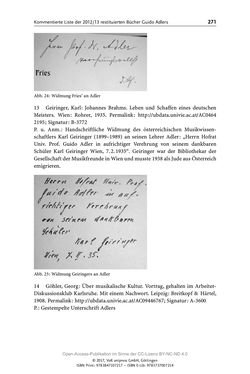 Kommentierte Liste der 2012/13 restituierten Bücher Guido Adlers 271
Herrn Prof. Dr. Adler
Fries
Abb. 24: Widmung Fries' an Adler
13 Geiringer, Karl: Johannes Brahms. Leben und Schaffen eines deutschen
Meisters, Wien: Rohrer, 1935. Permalink: http://ubdata.univie.ac.at/AC0464
2195; Signatur: B-3772
P. u. Anm.: Handschriftliche Widmung des österreichischen Musikwissen-
schaftlers Karl Geiringer (1899–1989) an seinen Lehrer Adler: „Herrn Hofrat
Univ. Prof. Guido Adler in aufrichtiger Verehrung von seinem dankbaren
Schüler Karl Geiringer Wien, 7.2.1935“. Geiringer war der Bibliothekar der
Gesellschaft der Musikfreunde in Wien und musste 1938 als Jude aus Österreich
emigrieren.
Herrn Hofrat Univ. Prof.
Guido Adler in auf-
richtiger Verehrung
von seinem dankbaren
Schüler
Karl Geiringer
Wien, 7. II. 35.
Abb. 25: Widmung Geiringers an Adler
14 Göhler, Georg: Über musikalische Kultur. Vortrag, gehalten im Arbeiter-
Diskussionsklub Karlsruhe. Mit einem Nachwort. Leipzig: Breitkopf & Härtel,
1908. Permalink: http://ubdata.univie.ac.at/AC09446767; Signatur: A-3600
P.: Gestempelte Unterschrift Adlers
Open-Access-Publikation im Sinne der CC-Lizenz BY-NC-ND 4.0
© 2017, V&R unipress GmbH, Göttingen
ISBN Print: 9783847107217 – ISBN E-Lib: 9783737007214